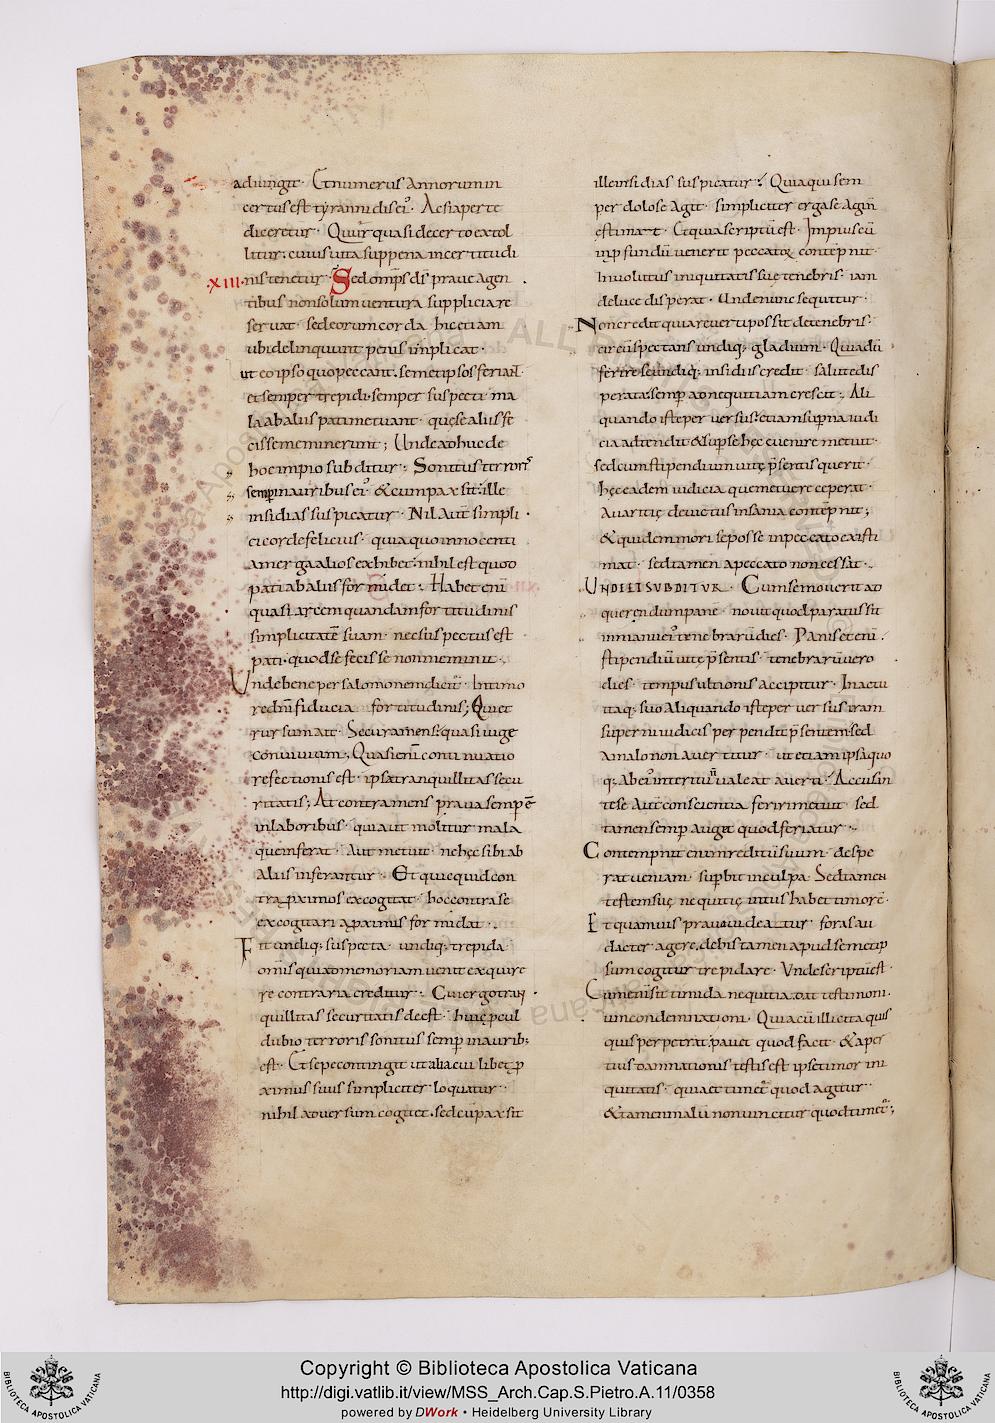 adiungit. Et numerus annorum in
certus est tyrannidis ei'. Ac si aperte
diceretur. Qur quasi de certo extol
litur; cuius vita sup pena incertitudi
·XIII· nis tenetur. Sed omps ds prave agen
tibus non solum ventura supplicia re
servat. sed eorum corda hic etiam
ubi delinquunt penis implicat.
ut eo ipso quo peccant. semetipsos feriant.
et semper trepidi. semper suspecti. ma
la ab aliis pati metuant. quę se aliis fe
cisse meminerunt; Unde adhuc de
hoc impio subditur. Sonitus terroris
semp in auribus ei'. & cum pax sit. ille
insidias suspicatur. Nil aut simpli
ci corde felicius. quia quo innocenti
am erga alios exhibet. nihil est quod
pati ab aliis formidet. Habet eni
quasi arcem quandam fortitudinis
simplicitate suam. nec suspectus est
pati. quod se fecisse non meminit.
Unde bene per salomonem dicitur. In timo
re dni fiducia fortitudinis; Qui et
rursum ait. Secura mens. quasi iuge
convivium; Quasi eni continuatio
refectionis est. ipsa tranquillitas secu
ritatis; At contra mens prava semp e
in laboribus. quia aut molitur mala
que inferat. aut metuit ne hęc sibi ab
aliis inferantur. Et quicquid con
tra pximos excogitat. hoc contra se
excogitari a pximis formidat.
Fit undiq; suspecta. undiq; trepida.
omnis qui ad memoriam venit exquire
re contraria creditur. Cui ergo tran
quillitas securitatis deest. huic pcul
dubio terroris sonitus semp in aurib;
est. Et sepe contingit ut alia cui libet p
ximus suus simpliciter loquatur.
nihil adversum cogitet. sed cu pax sit
ille insidias suspicatur. Quia qui sem
per dolose agit. simpliciter erga se agi n
estimat. Et quia scriptu est. Impius cu
in pfundu venerit peccator contepnit.
Involutus iniquitatis suę tenebris. iam
de luce disperat. Unde nunc sequitur.
Non credit quia reverti possit de tenebris.
circuspectans undiq; gladium. Qui adu
ferire se undiq; insidiis credit. salute dis
perata. semp ad nequitiam crescit; Ali
quando iste perversus. etiam supna iudi
cia adtendit & sup se hęc evenire metuit.
sed cum stipendium vitę psentis querit.
hęc eadem iudicia que metuere ceperat.
Avaritię devictus insania contepnit;
& quidem mori se posse in peccato existi
mat. sed tamen a peccato non cessat.
UNDE ET SUBDITUR. Cum se moverit ad
querendum pane. novit quod paratus sit
in manu ei' tenebraru dies. Panis et eni.
stipendiu vitę psentis. tenebraru vero
dies. tempus ultionis accipitur. In actu
itaq; suo aliquando iste perversus iram
superni iudicis perpendit psentem. sed
a malo non avertitur. ut etiam ipsa quo
q; ab ei' interitu n valeat averti. Accusan
te se aut conscientia feriri metuit. sed
tamen semp auget quod feriatur.
Contempnit eni reditu suum. despe
rat veniam. supbit in culpa. Sed tamen
testem suę nequitię intus habet timore.
Et quamvis prava videatur foras au
dacter agere. de his tamen apud semetip
sum cogitur trepidare. Unde scriptu est.
Cum eni sit timida nequitia. dat testimoni.
um condemnationi. Quia cu illicita quis
quis perpetrat. pavet quod facit. & aper
tius damnationis testis est ipse timor ini
quitatis. quia et timet quod agitur.
& tamen malu non vincitur quod timet;
Copyright © Biblioteca Apostolica Vaticana
http://digi.vatlib.it/view/MSS_Arch.Cap.S.Pietro.A.11/0358
powered by DWork • Heidelberg University Library
BIBLIOTECA APOSTOLICA VATICANA
BIBLIOTECA APOSTOLICA VATICANA